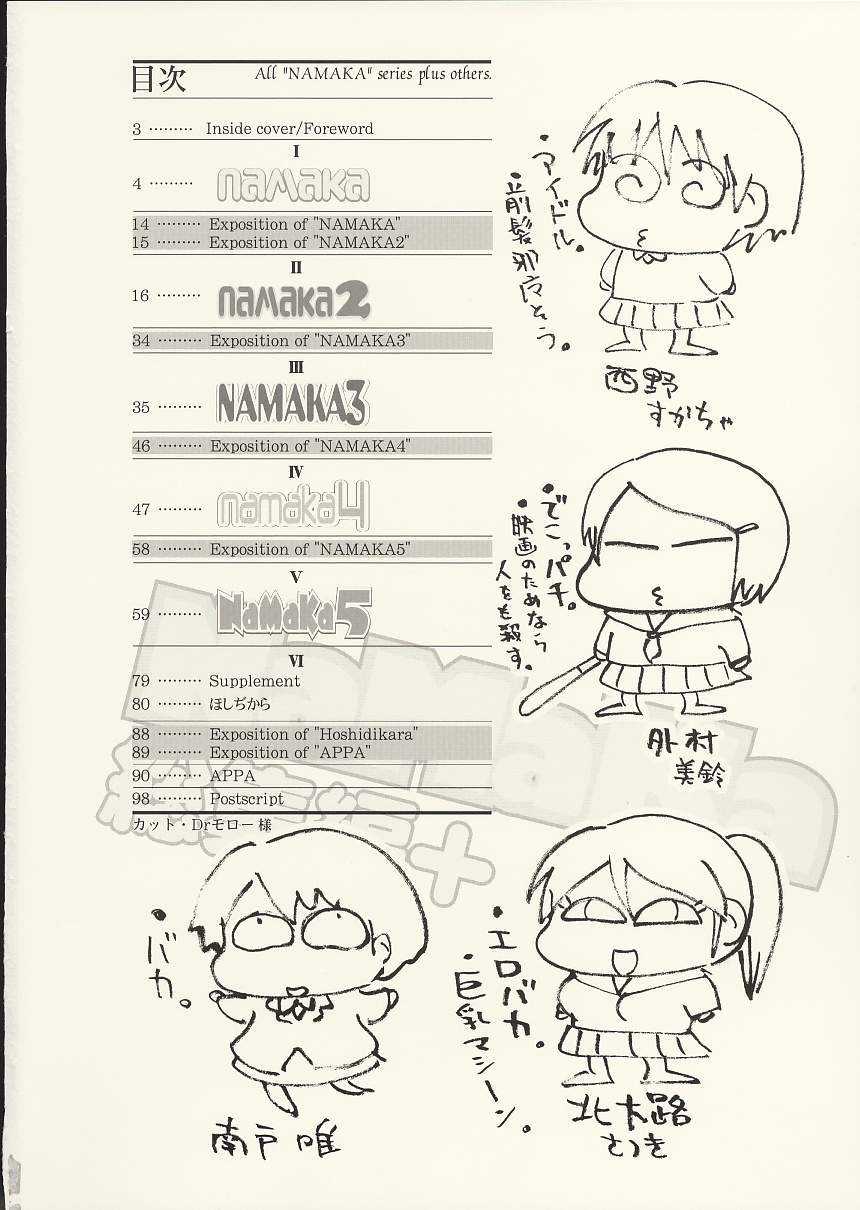 目次
All "NAMAKA" series plus others.
3 ……… Inside cover/Foreword
I
4 ……… namaka
14 ……… Exposition of "NAMAKA"
15 ……… Exposition of "NAMAKA2"
II
16 ……… namaka2
34 ……… Exposition of "NAMAKA3"
III
35 ……… NAMAKA3
46 ……… Exposition of "NAMAKA4"
IV
47 ……… namaka4
58 ……… Exposition of "NAMAKA5"
V
59 ……… NaMaKa5
VI
79 ……… Supplement
80 ……… ほしぢから
88 ……… Exposition of "Hoshidikara"
89 ……… Exposition of "APPA"
90 ……… APPA
98 ……… Postscript
カット・Drモロー様
NaMaKa
総集編+
・アイドル。
・前髪邪魔そう。
西野
すかちゃ
・でこっパチ。
・映画のためなら
人をも殺す。
外村
美鈴
・バカ。
南戸唯
・エロバカ。
・巨乳マシーン。
北大路
さつき